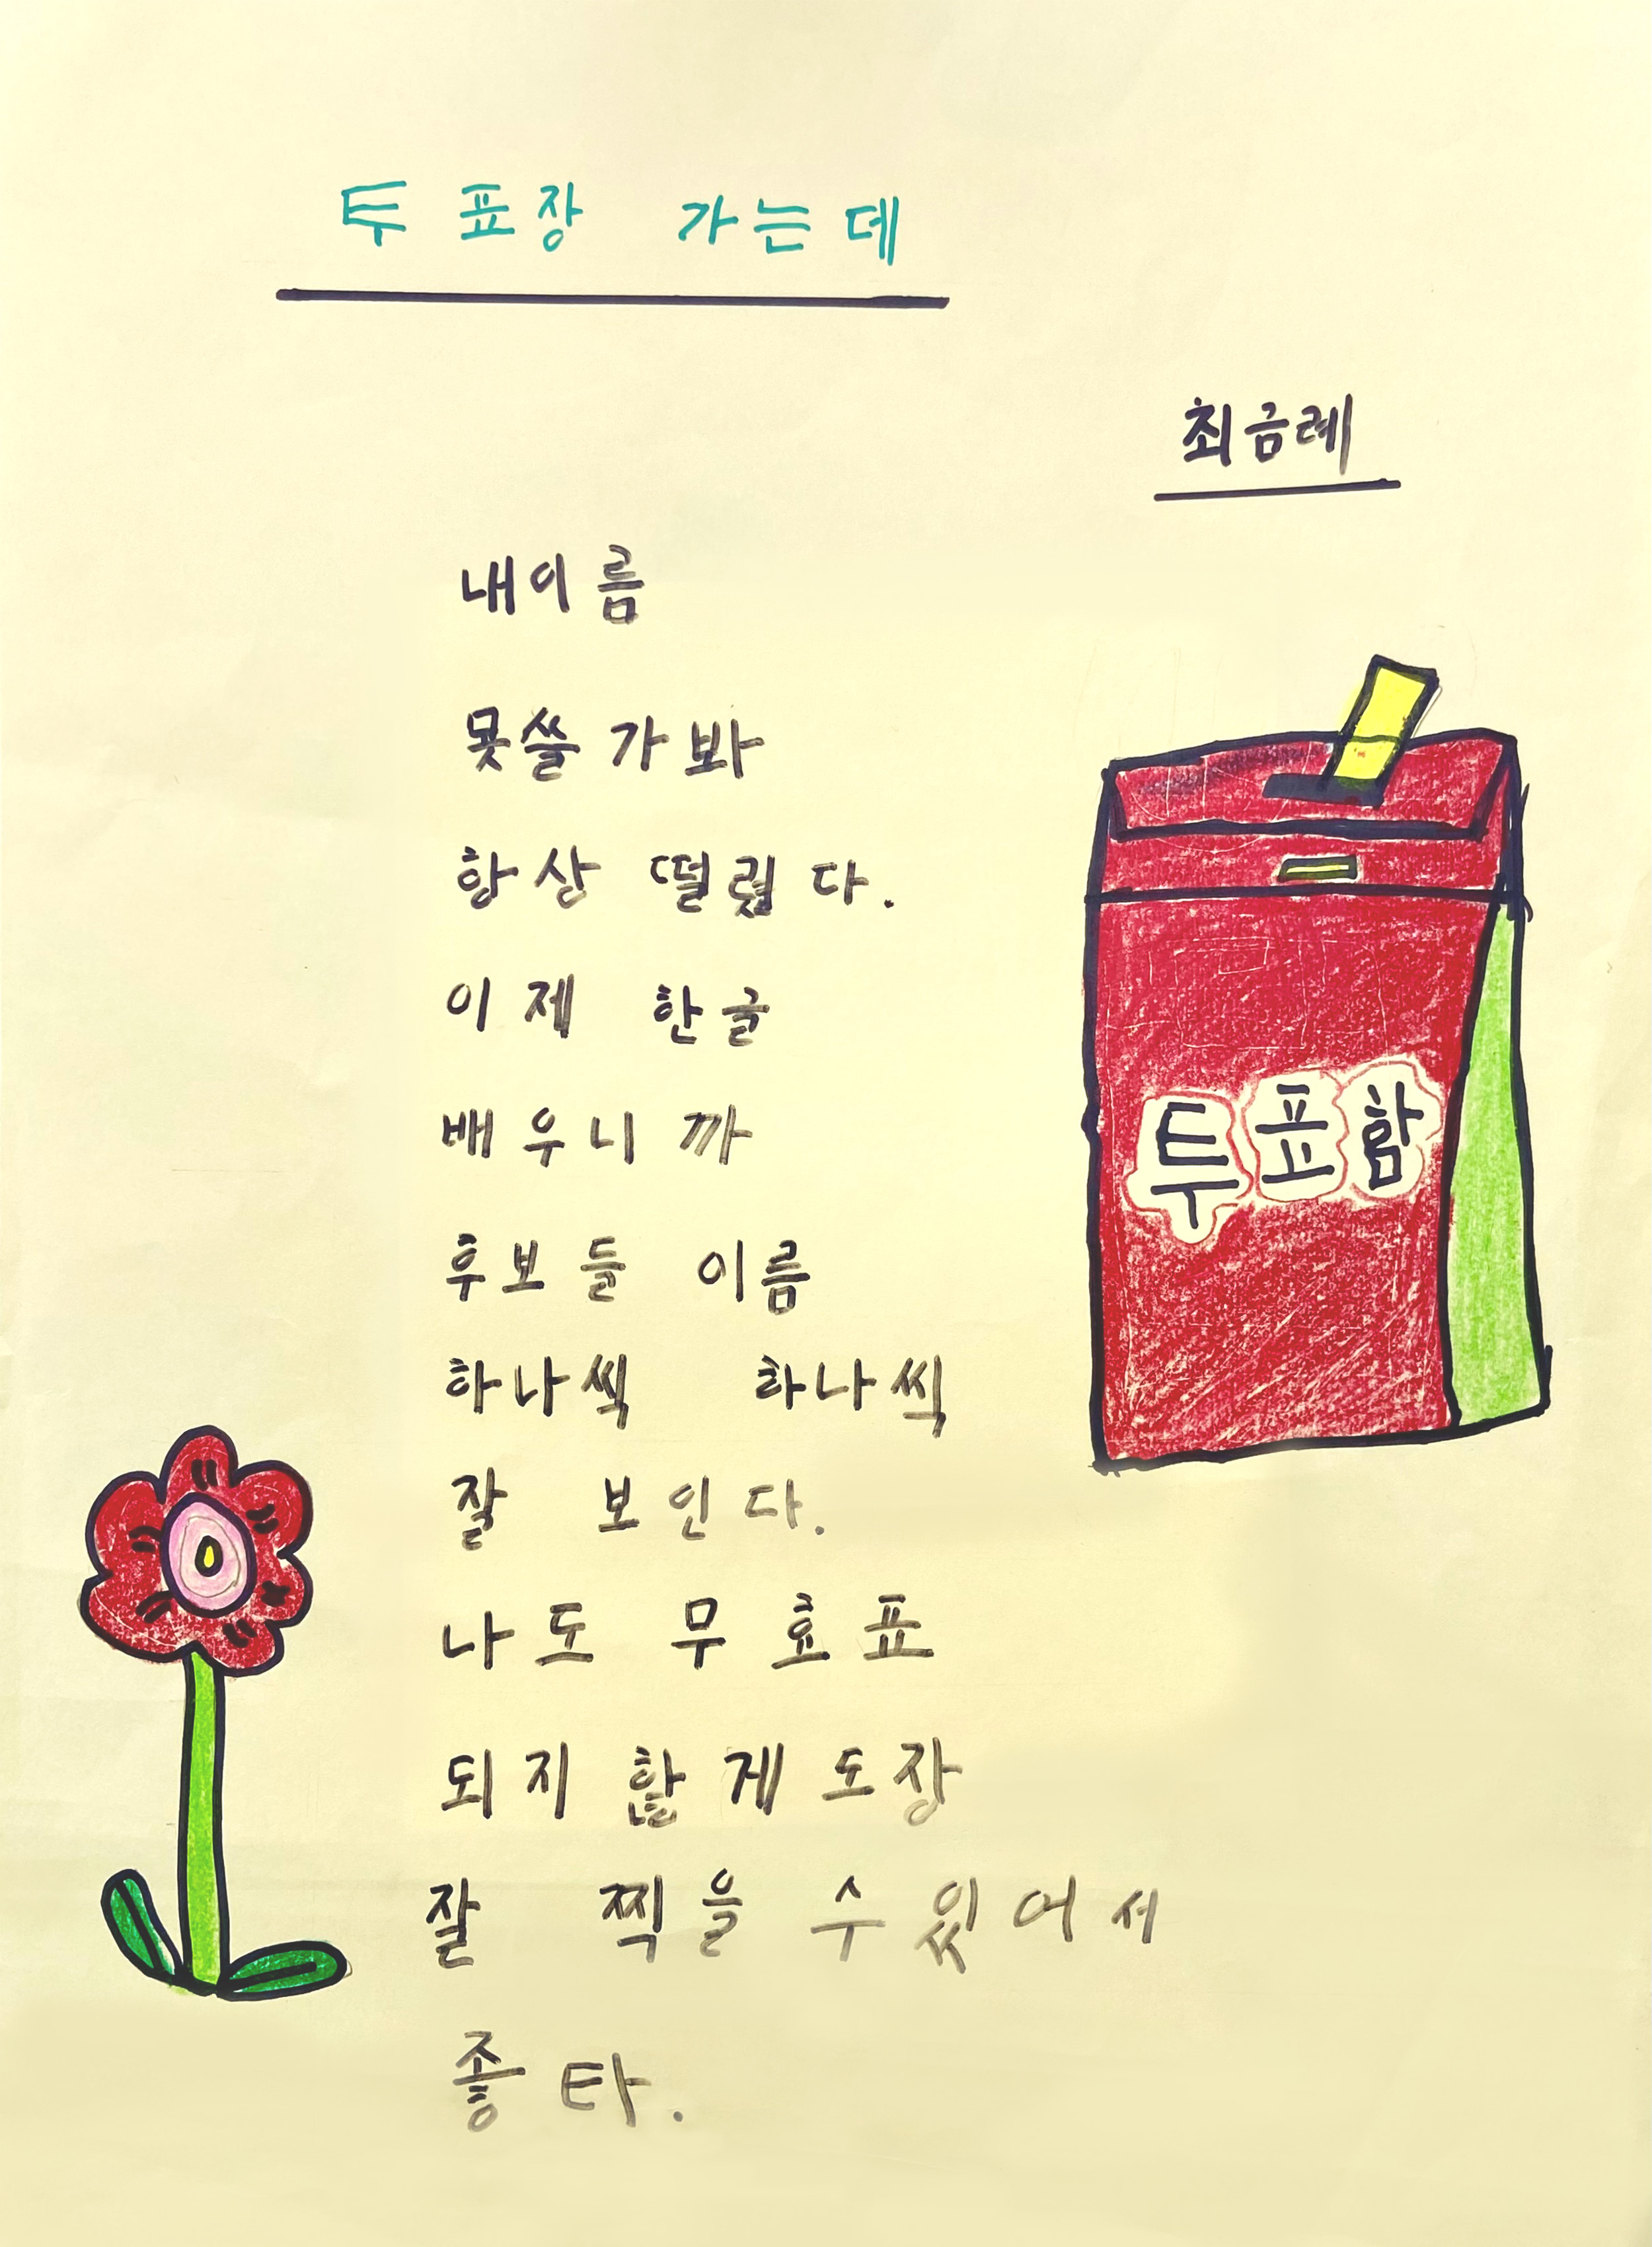 투표장 가는데
최금례
내이름
못쓸가봐
항상 떨렸다.
이제 한글
배우니까
후보들 이름
하나씩 하나씩
잘 보인다.
나도 무효표
되지 핞게 도장
잘 찍을 수 있어서
좋타.
투표함